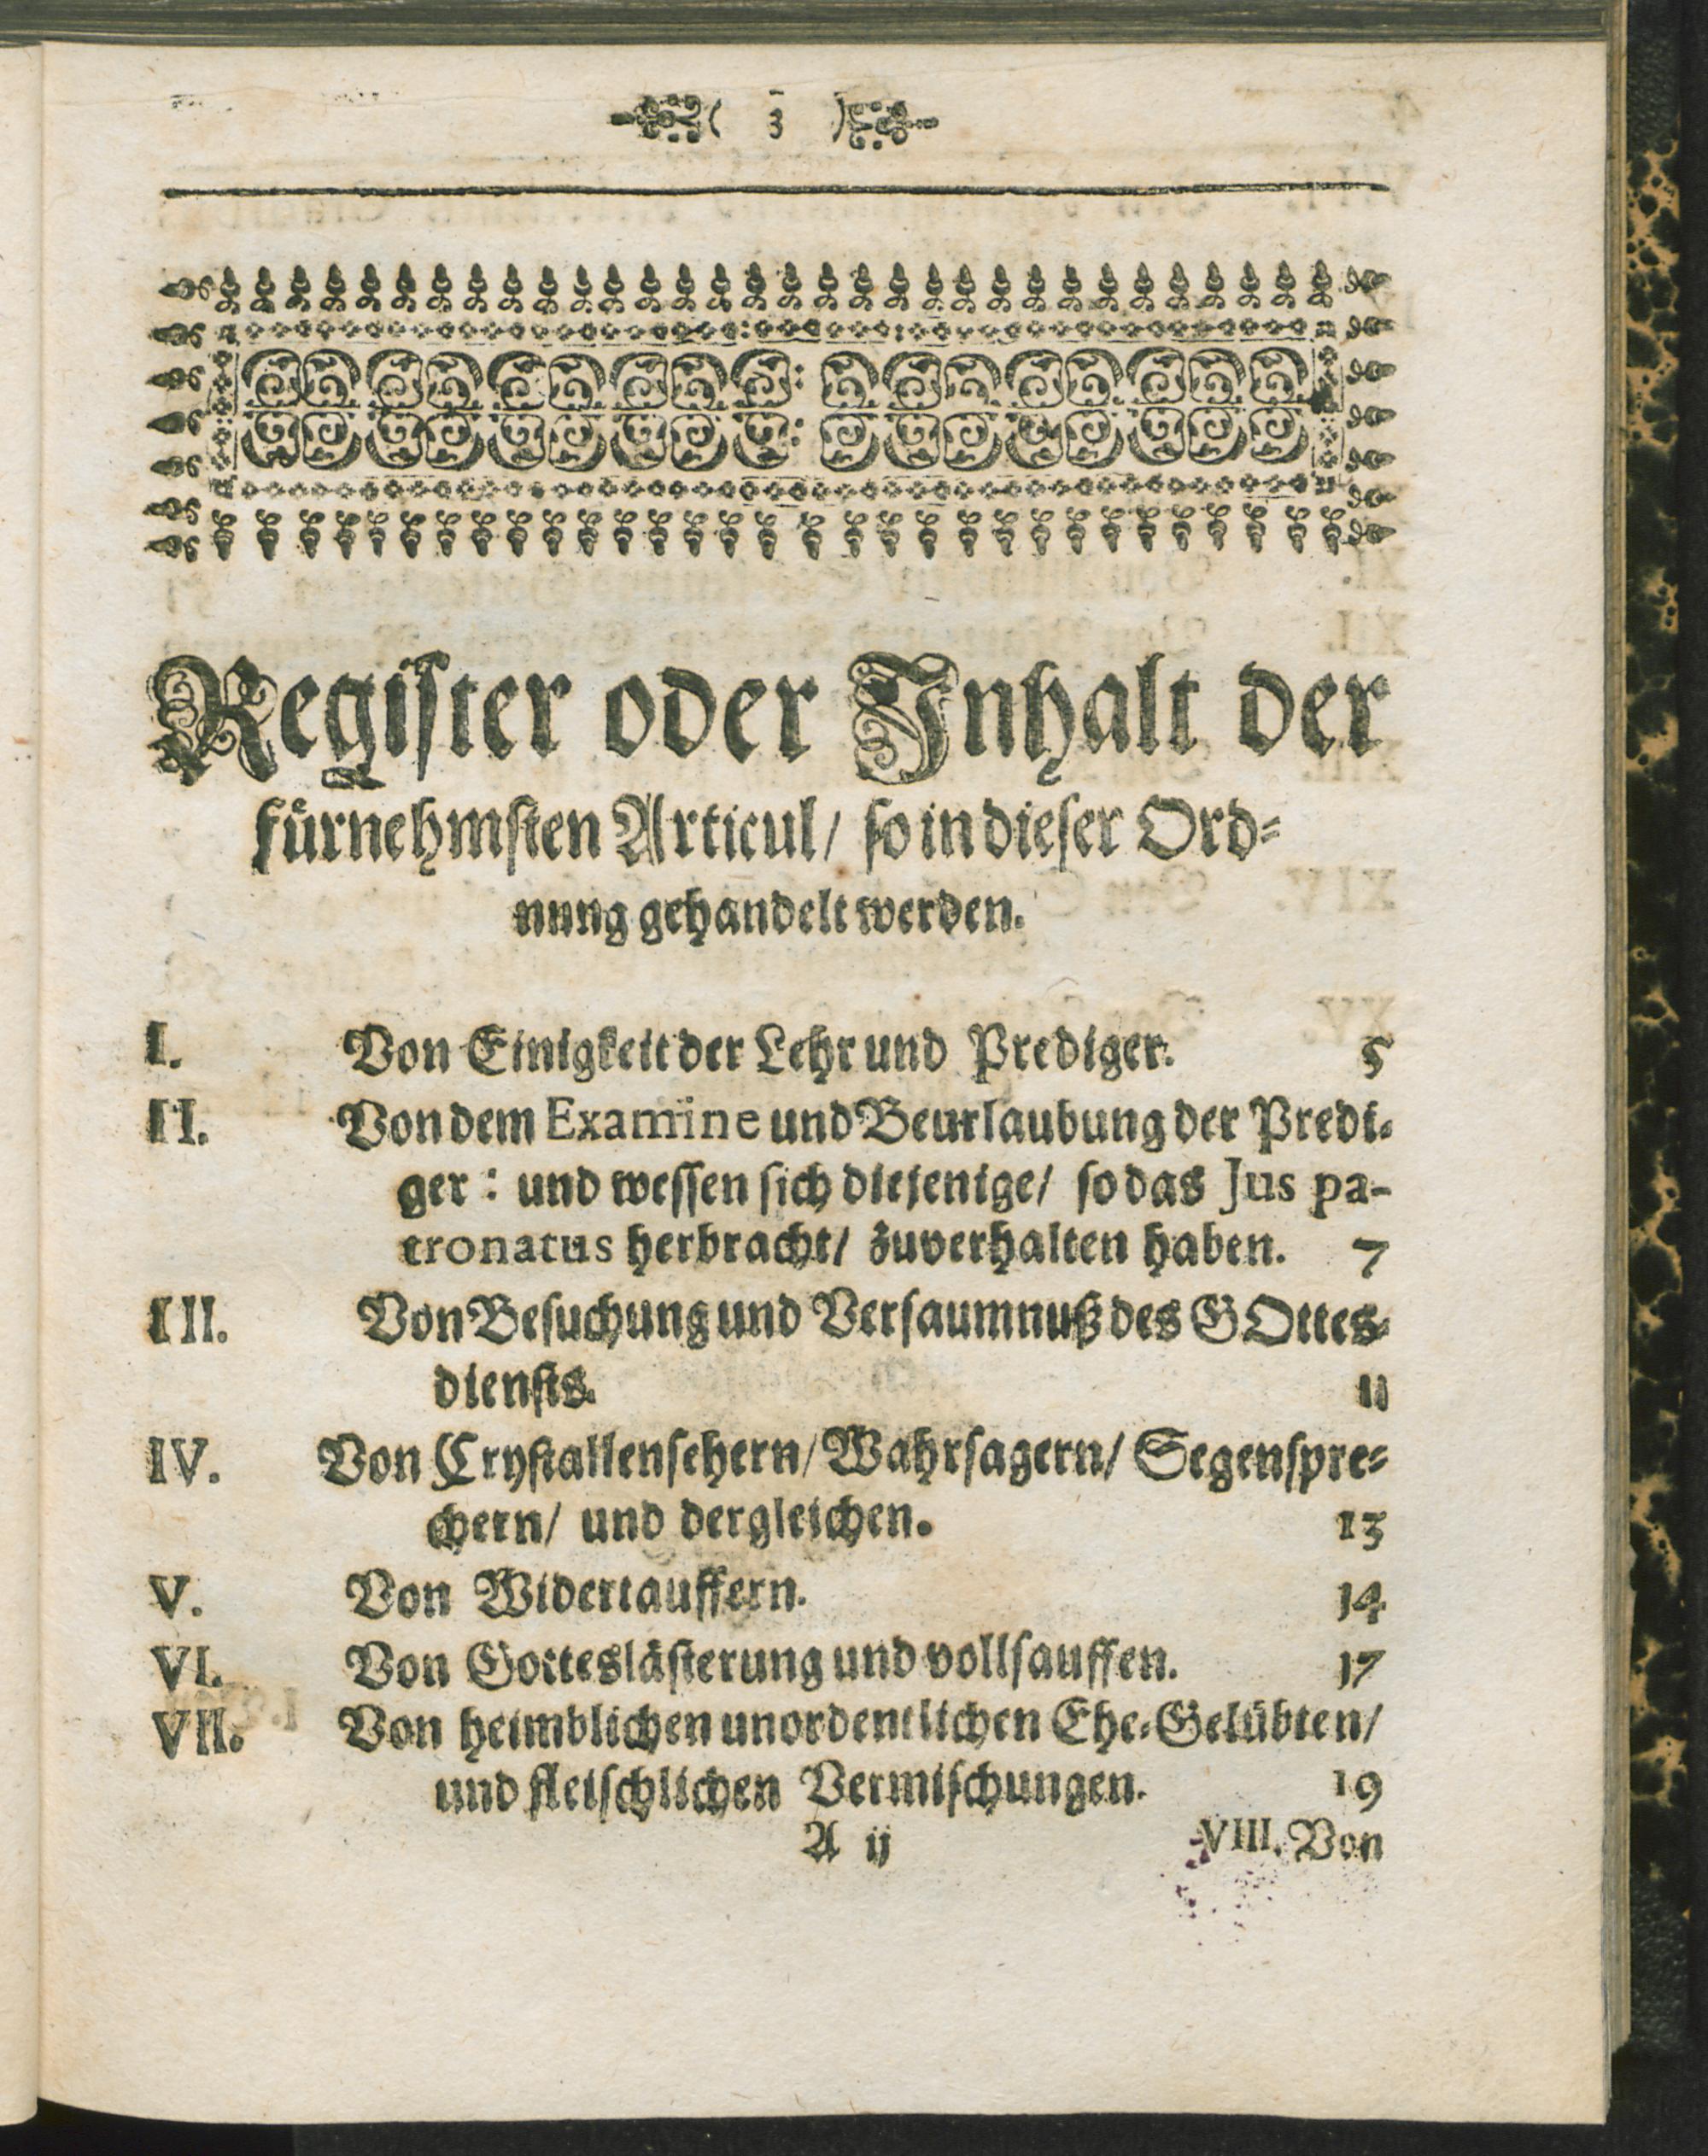 ( 3 )
Register oder Inhalt der
fürnehmsten Articul/ so in dieser Ord-
nung gehandelt werden.
I. Von Einigkeit der Lehr und Prediger. 5
II. Von dem Examine und Beurlaubung der Predi-
ger: und wessen sich diejenige/ so das Jus pa-
tronatus herbracht/ zuverhalten haben. 7
III. Von Besuchung und Versaumnuß des GOttes-
diensts. 11
IV. Von Crystallensehern/ Wahrsagern/ Segenspre-
chern/ und dergleichen. 13
V. Von Widertauffern. 14
VI. Von Gotteslästerung und vollsauffen. 17
VII. Von heimblichen unordentlichen Ehe-Gelübten/
und fleischlichen Vermischungen. 19
A ij VIII. Von